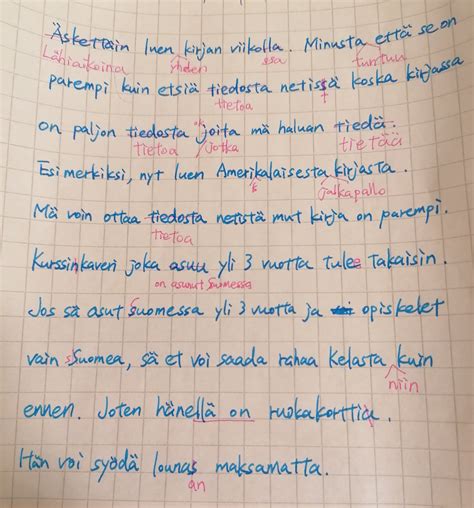 Äskettäin luen kirjan viikolla. Minusta että se on
Lähiaikoina yhden ssa tuntuu
parempi kuin etsiä tiedosta netissä koska kirjassa
tietoa t
on paljon tiedosta joita mä haluan tiedä.
tietoa jotka tietää
Esimerkiksi, nyt luen Amerikalaisesta kirjasta.
s jalkapallo
Mä voin ottaa tiedosta netistä mut kirja on parempi.
tietoa
Kurssinkaveri joka asuu yli 3 vuotta tulee Takaisin.
on asunut Suomessa
Jos sä asut Suomessa yli 3 vuotta ja opiskelet
vain Suomea, sä et voi saada rahaa Kelasta kuin
niin
ennen. Joten hänellä on ruokakorttia.
Hän voi syödä lounas maksamatta.
an